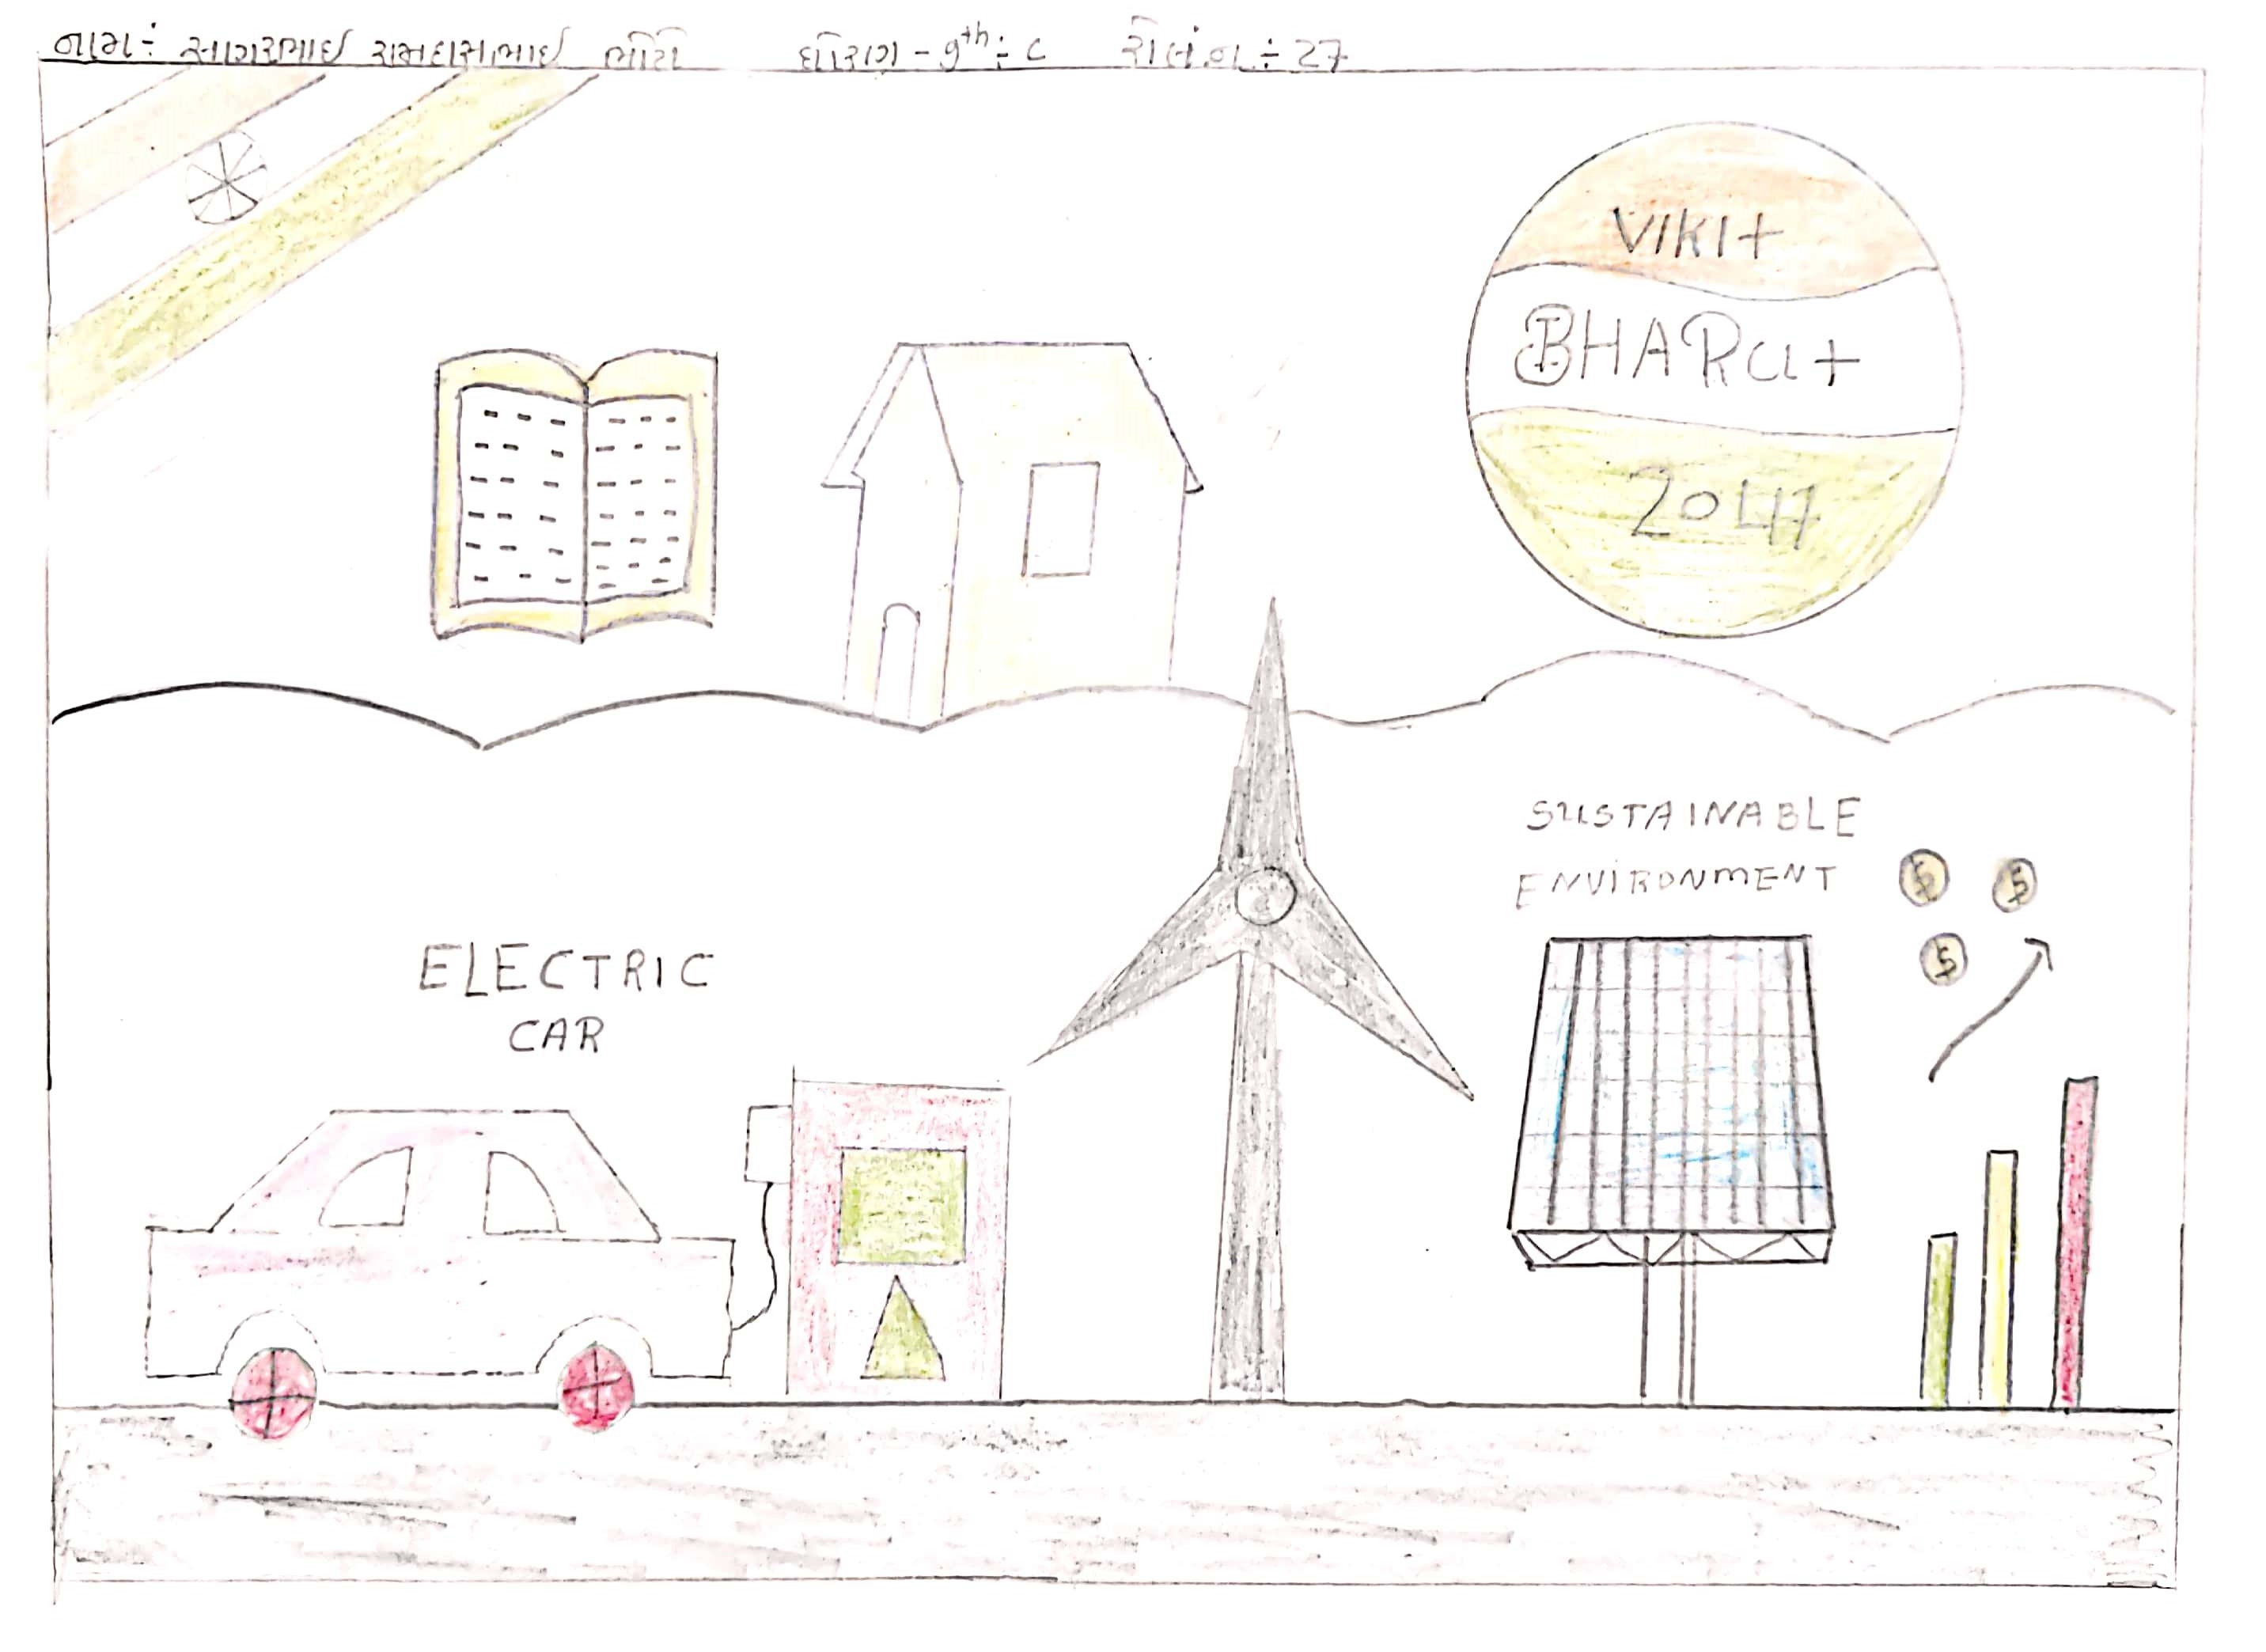 નામ÷ સાગરભાઈ રામદાસભાઈ ભોયે ધોરણ - 9th ÷ C રોલ નં ÷ 27
VIKIt
BHARat
2047
SUSTAINABLE
ENVIRONMENT
$ $
$
ELECTRIC
CAR